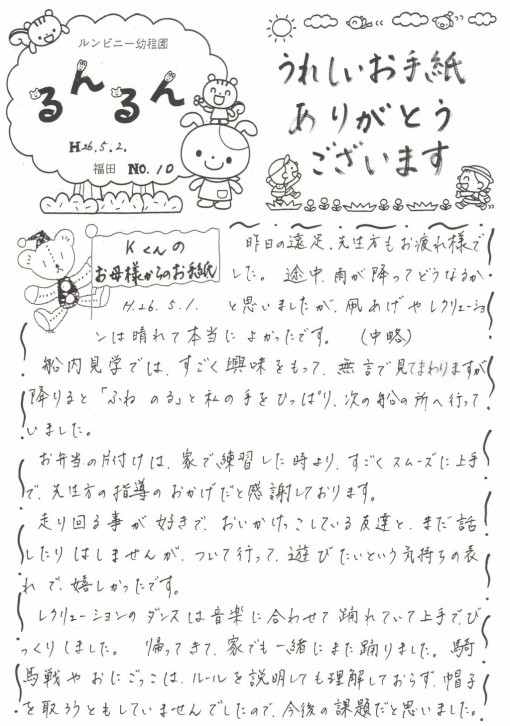 ルンビニー幼稚園
るんるん
H26.5.2.
福田 No.10
うれしいお手紙
ありがとう
ございます
Kくんの
お母様からのお手紙
H.26.5.1.
昨日の遠足、先生方もお疲れ様で
した。途中、雨が降ってどうなるか
と思いましたが、凧あげやレクリエーショ
ンは晴れて本当によかったです。(中略)
船内見学では、すごく興味をもって、無言で見てまわりますが
降りると「ふね のる」と私の手をひっぱり、次の船の所へ行って
いました。
お弁当の片付けは、家で練習した時より、すごくスムーズに上手
で、先生方の指導のおかげだと感謝しております。
走り回る事が好きで、おいかけっこしている友達と、まだ話
したりはしませんが、ついて行って、遊びたいという気持ちの表
れで、嬉しかったです。
レクリエーションのダンスは音楽に合わせて踊れていて上手で、び
っくりしました。帰ってきて、家でも一緒にまた踊りました。騎
馬戦やおにごっこは、ルールを説明しても理解しておらず、帽子
を取ろうともしていませんでしたので、今後の課題だと思いました。